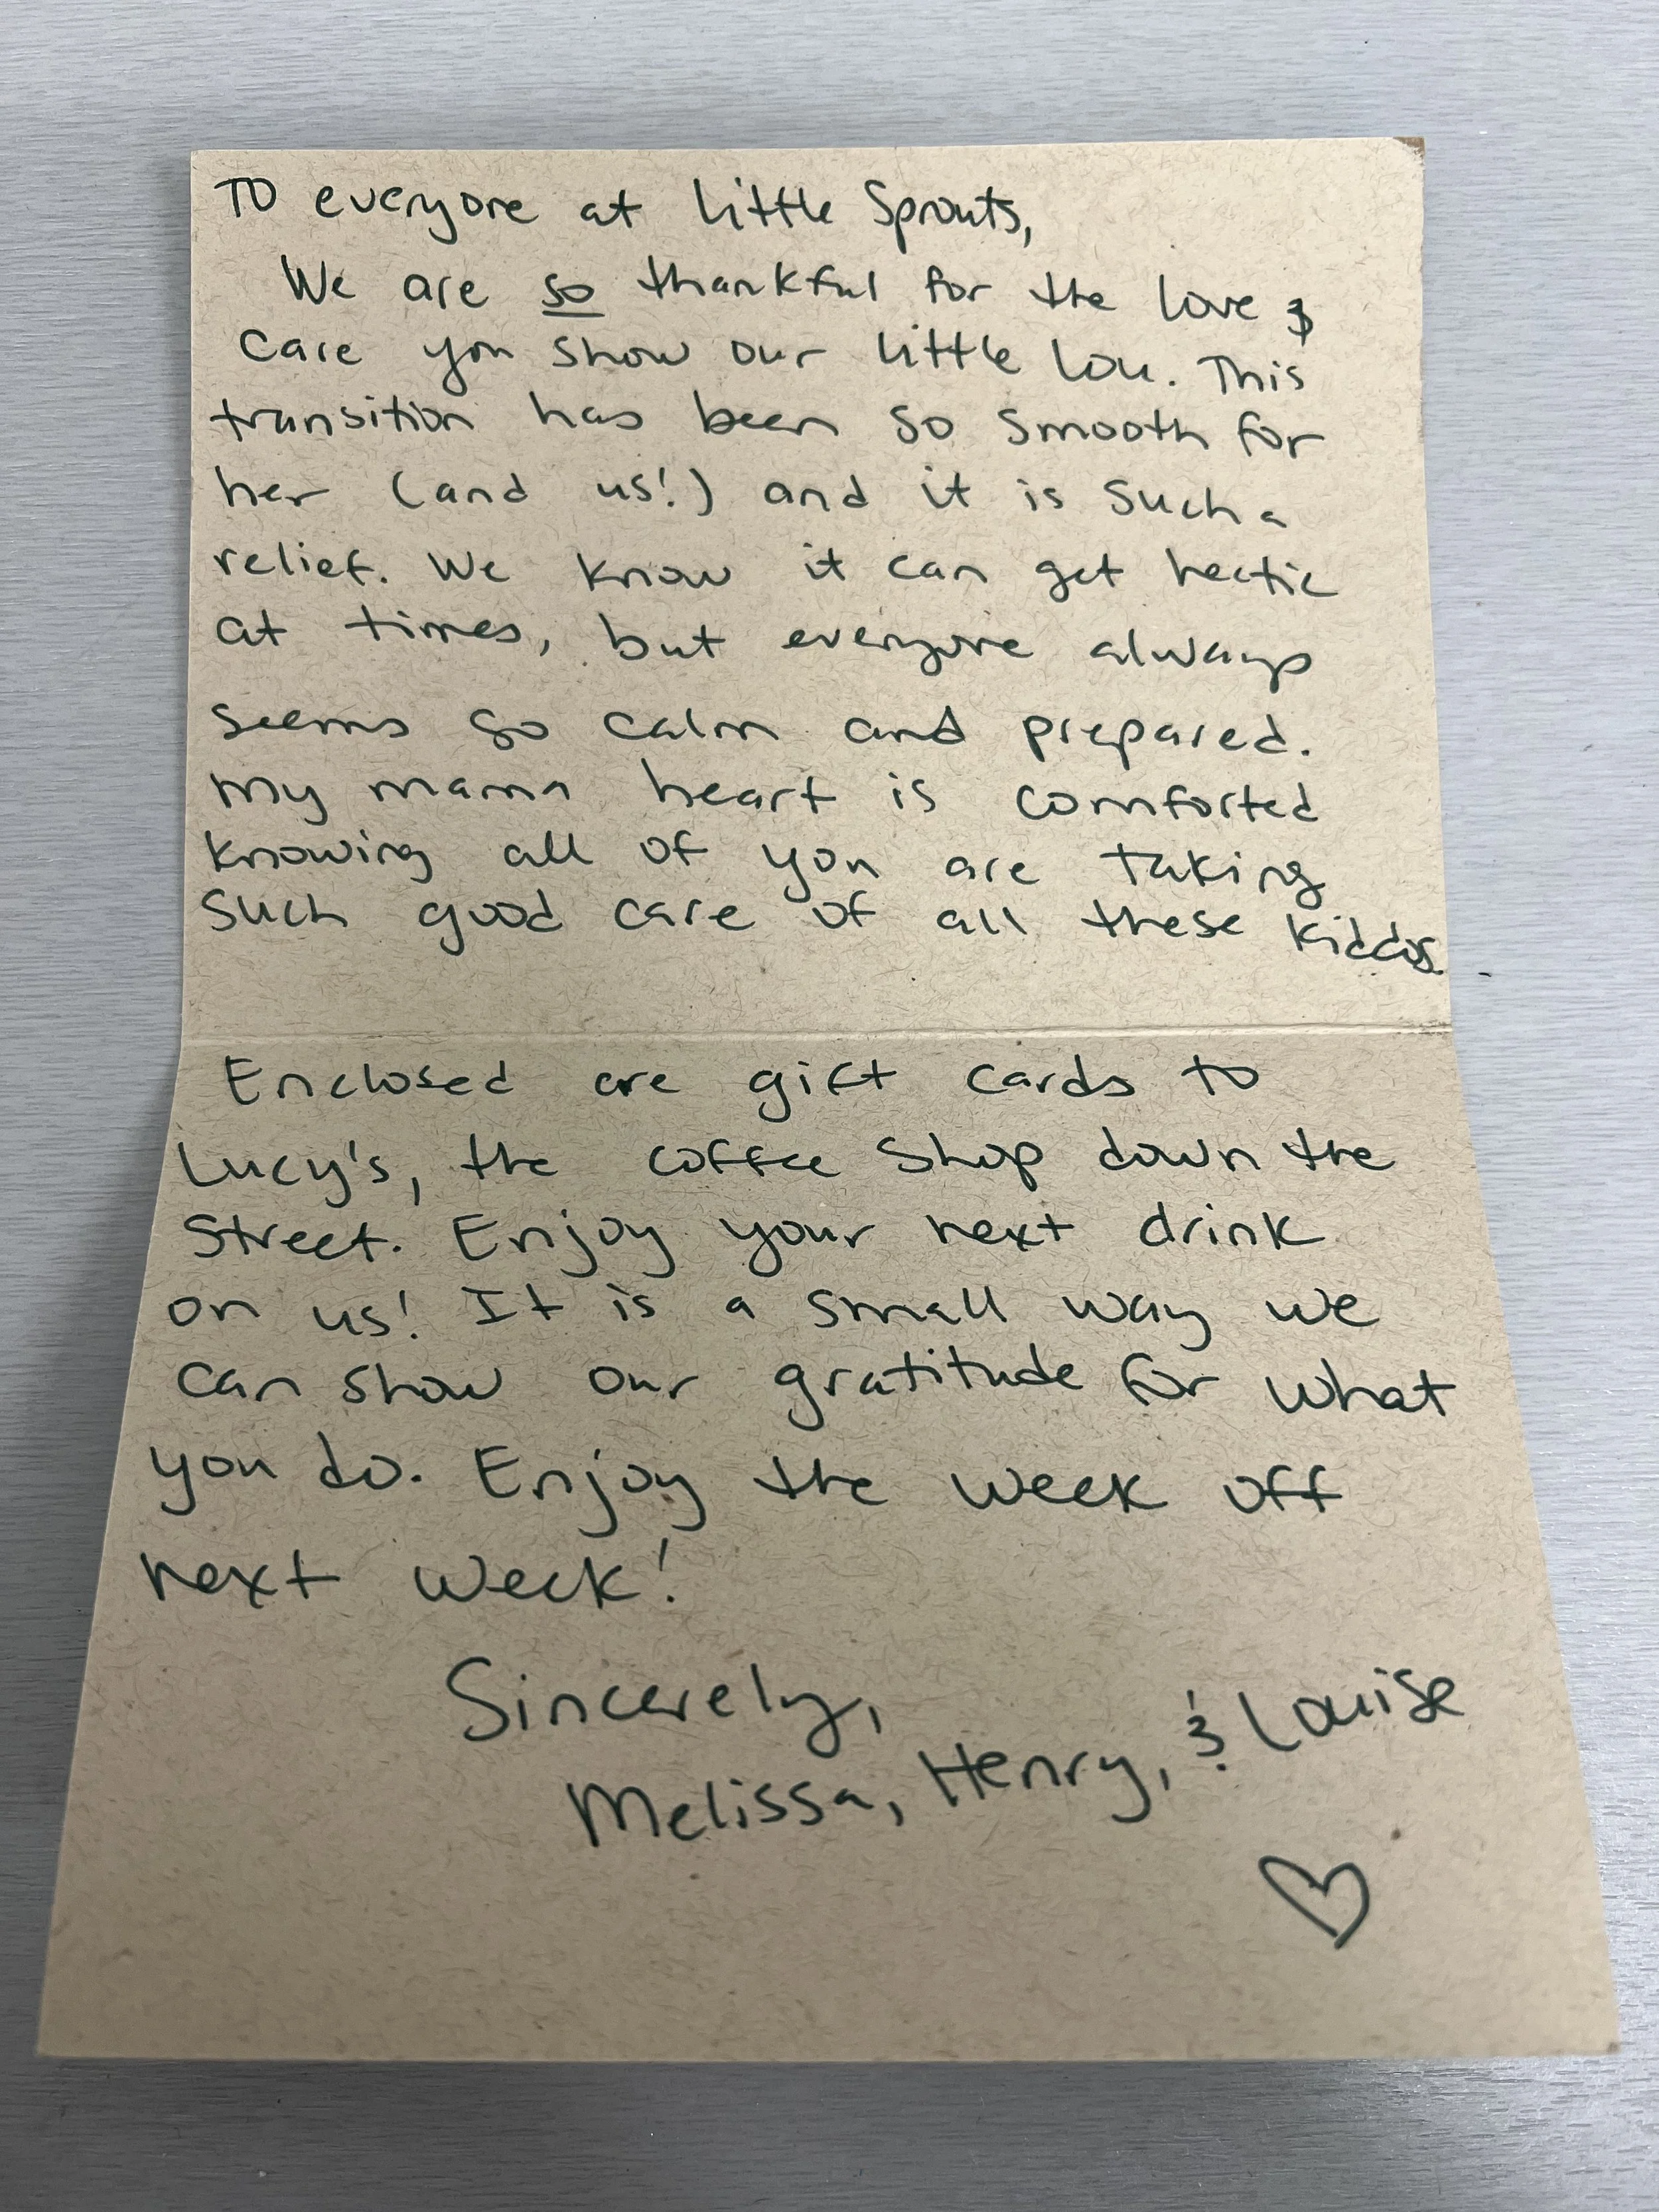 To everyone at Little Sprouts,
We are so thankful for the love &
care you show our little Lou. This
transition has been so smooth for
her (and us!) and it is such a
relief. We know it can get hectic
at times, but everyone always
seems so calm and prepared.
My mama heart is comforted
knowing all of you are taking
such good care of all these kiddos.
Enclosed are gift cards to
Lucy's, the coffee shop down the
street. Enjoy your next drink
on us! It is a small way we
can show our gratitude for what
you do. Enjoy the week off
next week!
Sincerely,
Melissa, Henry, & Louise